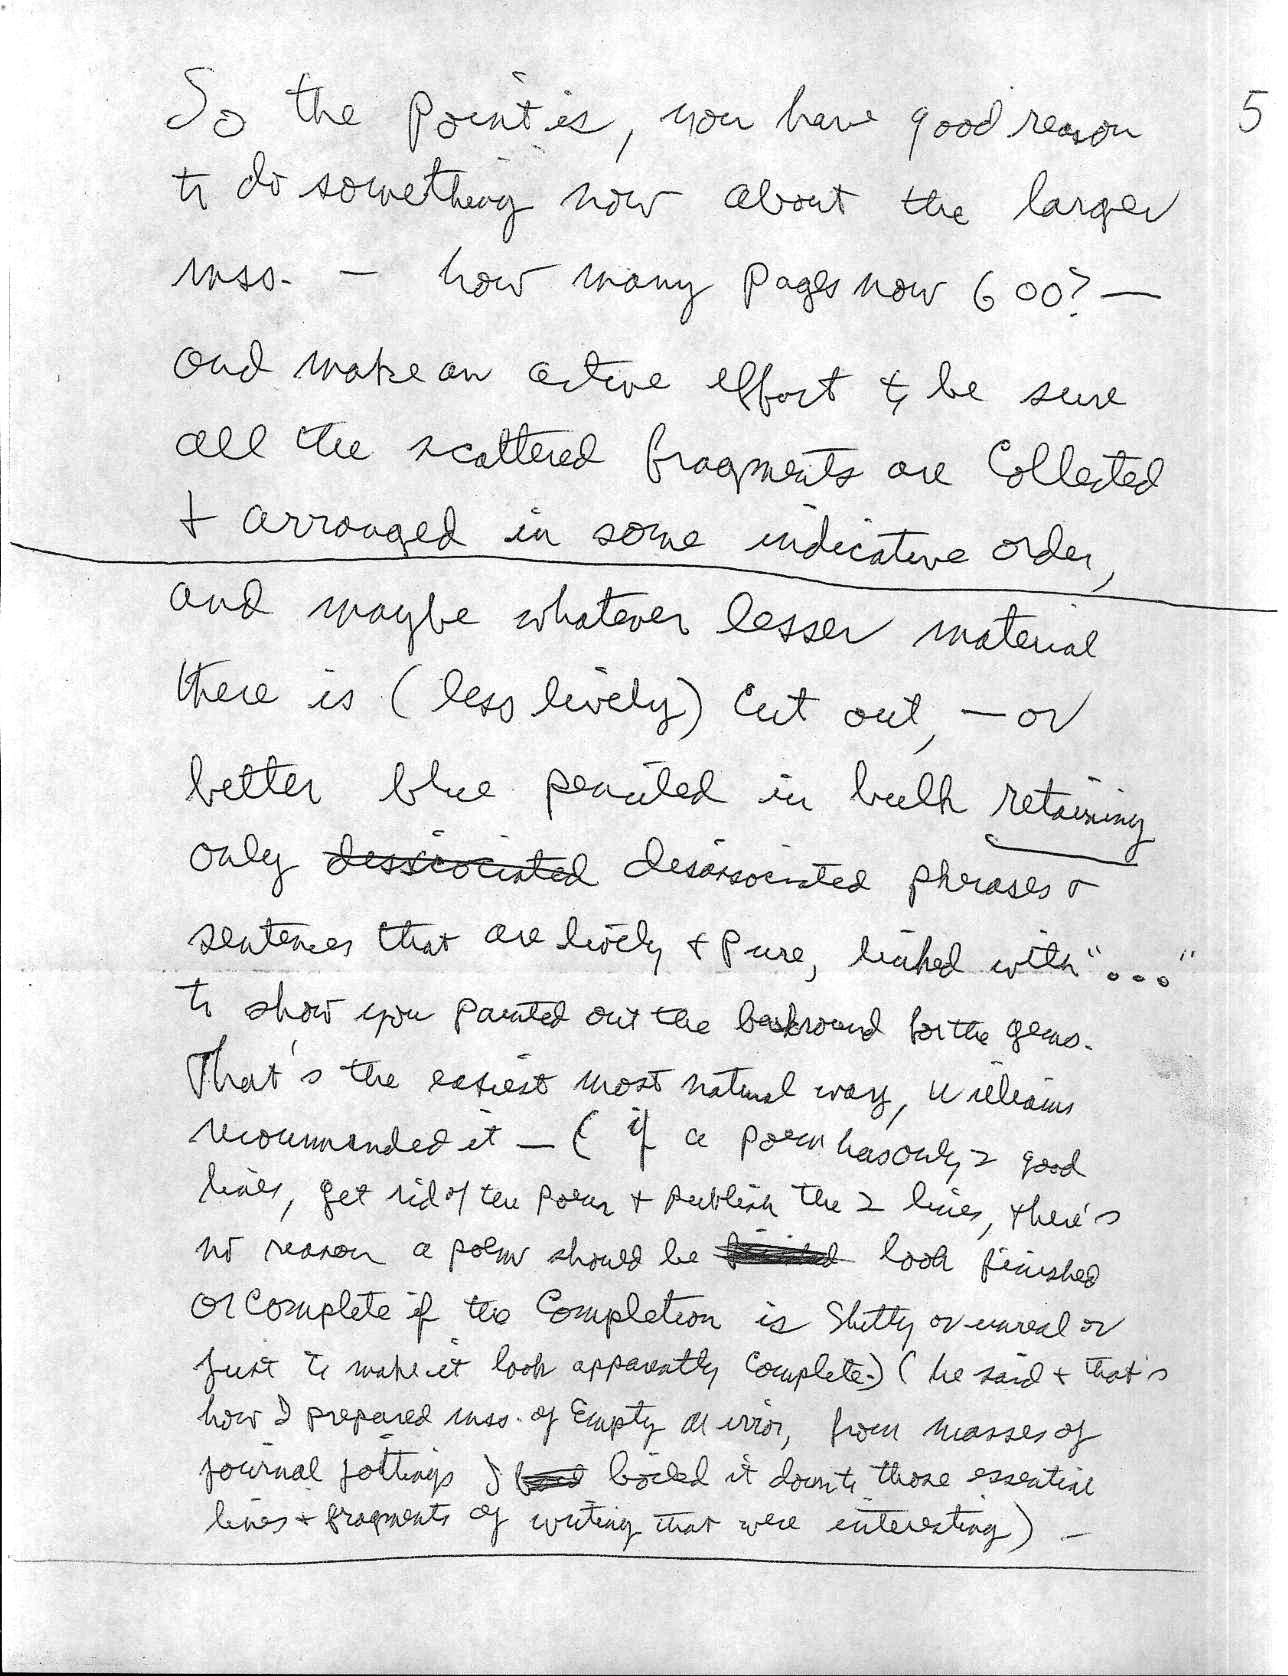 5
So the point is, you have good reason
to do something now about the larger
mss. — how many pages now 600? —
and make an active effort to be sure
all the scattered fragments are Collected
+ arranged in some indicative order,
and maybe whatever lesser material
there is (less lively) cut out, — or
better blue penciled in bulk retaining
only dissiociated disassociated phrases &
sentences that are lively + pure, linked with "..."
to show you painted out the backround for the gems.
That's the easiest most natural way, Williams
recommended it — (if a poem has only 2 good
lines, get rid of the poem + publish the 2 lines, there's
no reason a poem should be look finished
or complete if the Completion is Shitty or unreal or
just to make it look apparently complete.) (he said + that's
how I prepared mss. of Empty Mirror, from masses of
journal jottings I boiled it down to those essential
lines + fragments of writing that were interesting) —